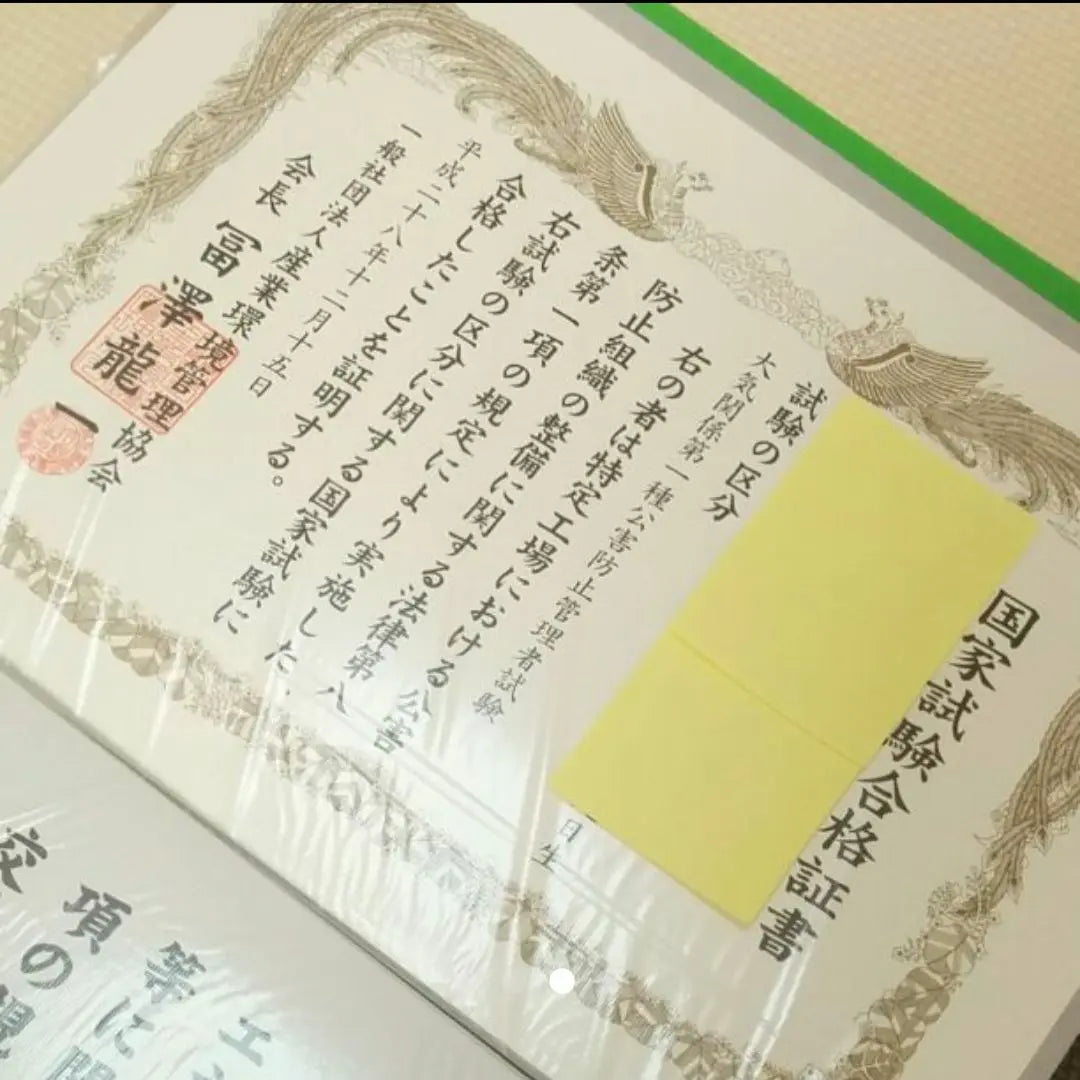 国家試験合格証書
日生
試験の区分
大気関係第一種公害防止管理者試験
右の者は特定工場における公害
防止組織の整備に関する法律第八
条第一項の規定により実施した
右試験の区分に関する国家試験に
合格したことを証明する。
平成二十八年十二月十五日
一般社団法人産業環境管理協会
会長 冨澤龍一
工
等に関
項の規
交